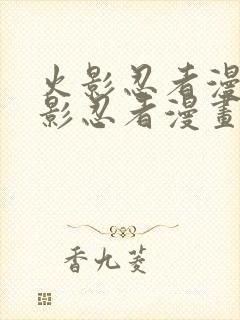 火影忍者漫
影忍者漫畫
香九菱